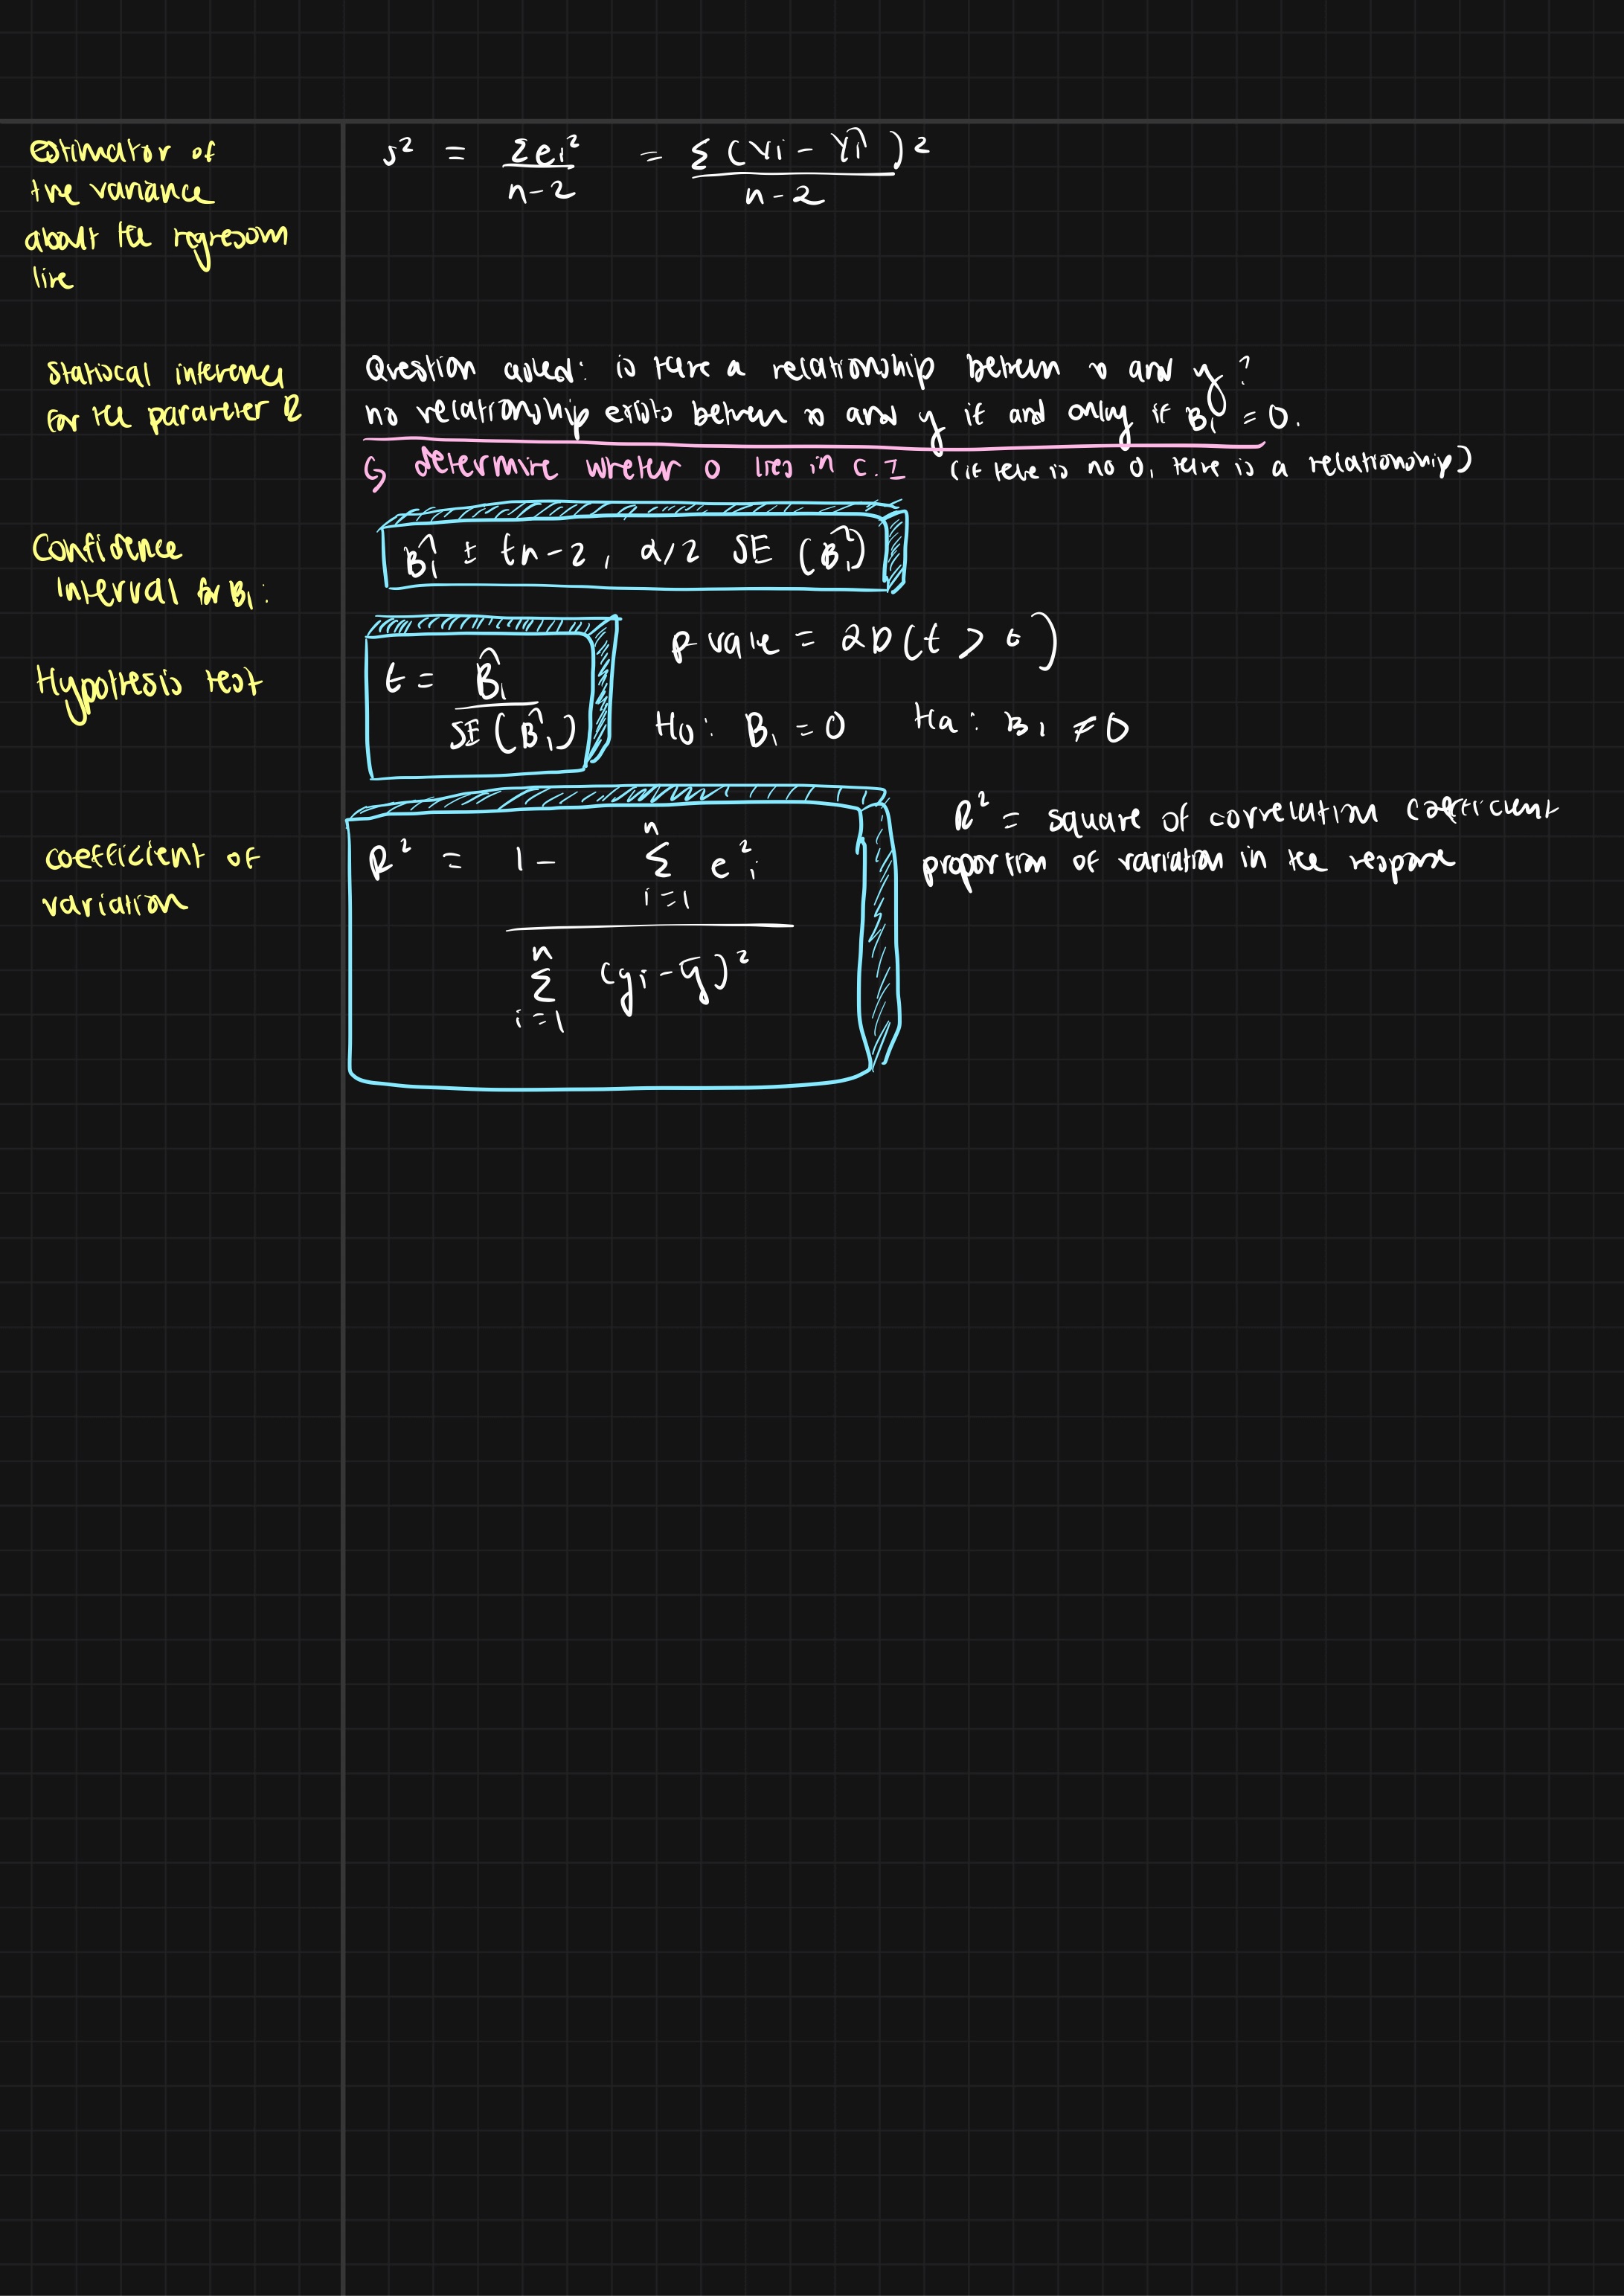 estimator of
the variance
about the regression
line
s² = Σei² / n-2 = Σ(Yi - Ŷi)² / n-2
Statiscal inference
for the parameter B
Question asked: is there a relationship between x and y?
no relationship exists between x and y if and only if B₁ = 0.
↳ determine wheter 0 lies in C.I (if there is no 0, there is a relationship)
Confidence
interval for B₁:
B̂₁ ± tn-2, α/2 SE (B̂₁)
Hypothesis test
t = B̂₁ / SE(B̂₁)
p value = 2P(t > t)
H0: B₁ = 0 Ha: B₁ ≠ 0
coefficient of
variation
R² = 1 - Σ e²i
n i=1
n Σ i=1 (yi - ȳ)²
R² = square of correlation coefficient
proportion of variation in the response